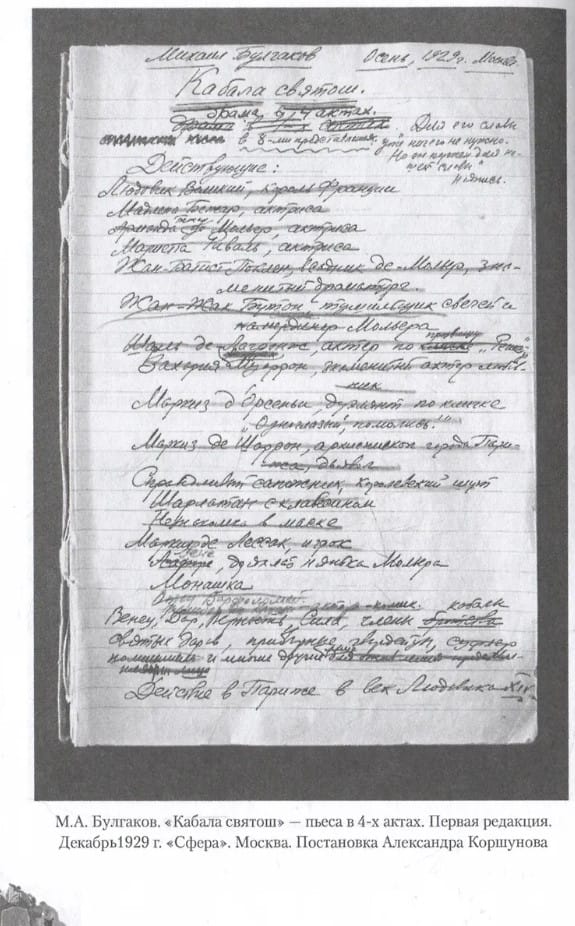 Михаил Булгаков Осень, 1929 г. Москва
Кабала святош.
драма в 4 актах.
в 8-ми представлениях.
Для его славы
уже ничего не нужно.
Но он нужен для на-
шей славы
Надпись.
Действующие:
Людовик Великий, король Франции
Мадлена Бежар, актриса
Арманда де Мольер, актриса
Мариетта Риваль, актриса
Жан-Батист Поклен, де-Мольер, зна-
менитый драматург.
Жан-Жак Бутон тушильщик свечей и
камердинер Мольера
де актер по прозвищу
Захария Муаррон, знаменитый актер люб-
ник
Маркиз д'Орсиньи, дуэлянт по кличке
"Одноглазый, помолись!"
Маркиз де Шаррон, архиепископ города Пари-
жа,
Справедливый сапожник, королевский шут
Шарлатан с клавесином
Незнакомка в маске
Маркиз де Лессак, игрок
Рене, дряхлая нянька Мольера
Монашка
Отец Варфоломей.
Верность, Сила, члены кабалы
святых даров,
и многие другие
Действие в Париже в век Людовика XIV.
М.А. Булгаков. «Кабала святош» — пьеса в 4-х актах. Первая редакция.
Декабрь1929 г. «Сфера». Москва. Постановка Александра Коршунова